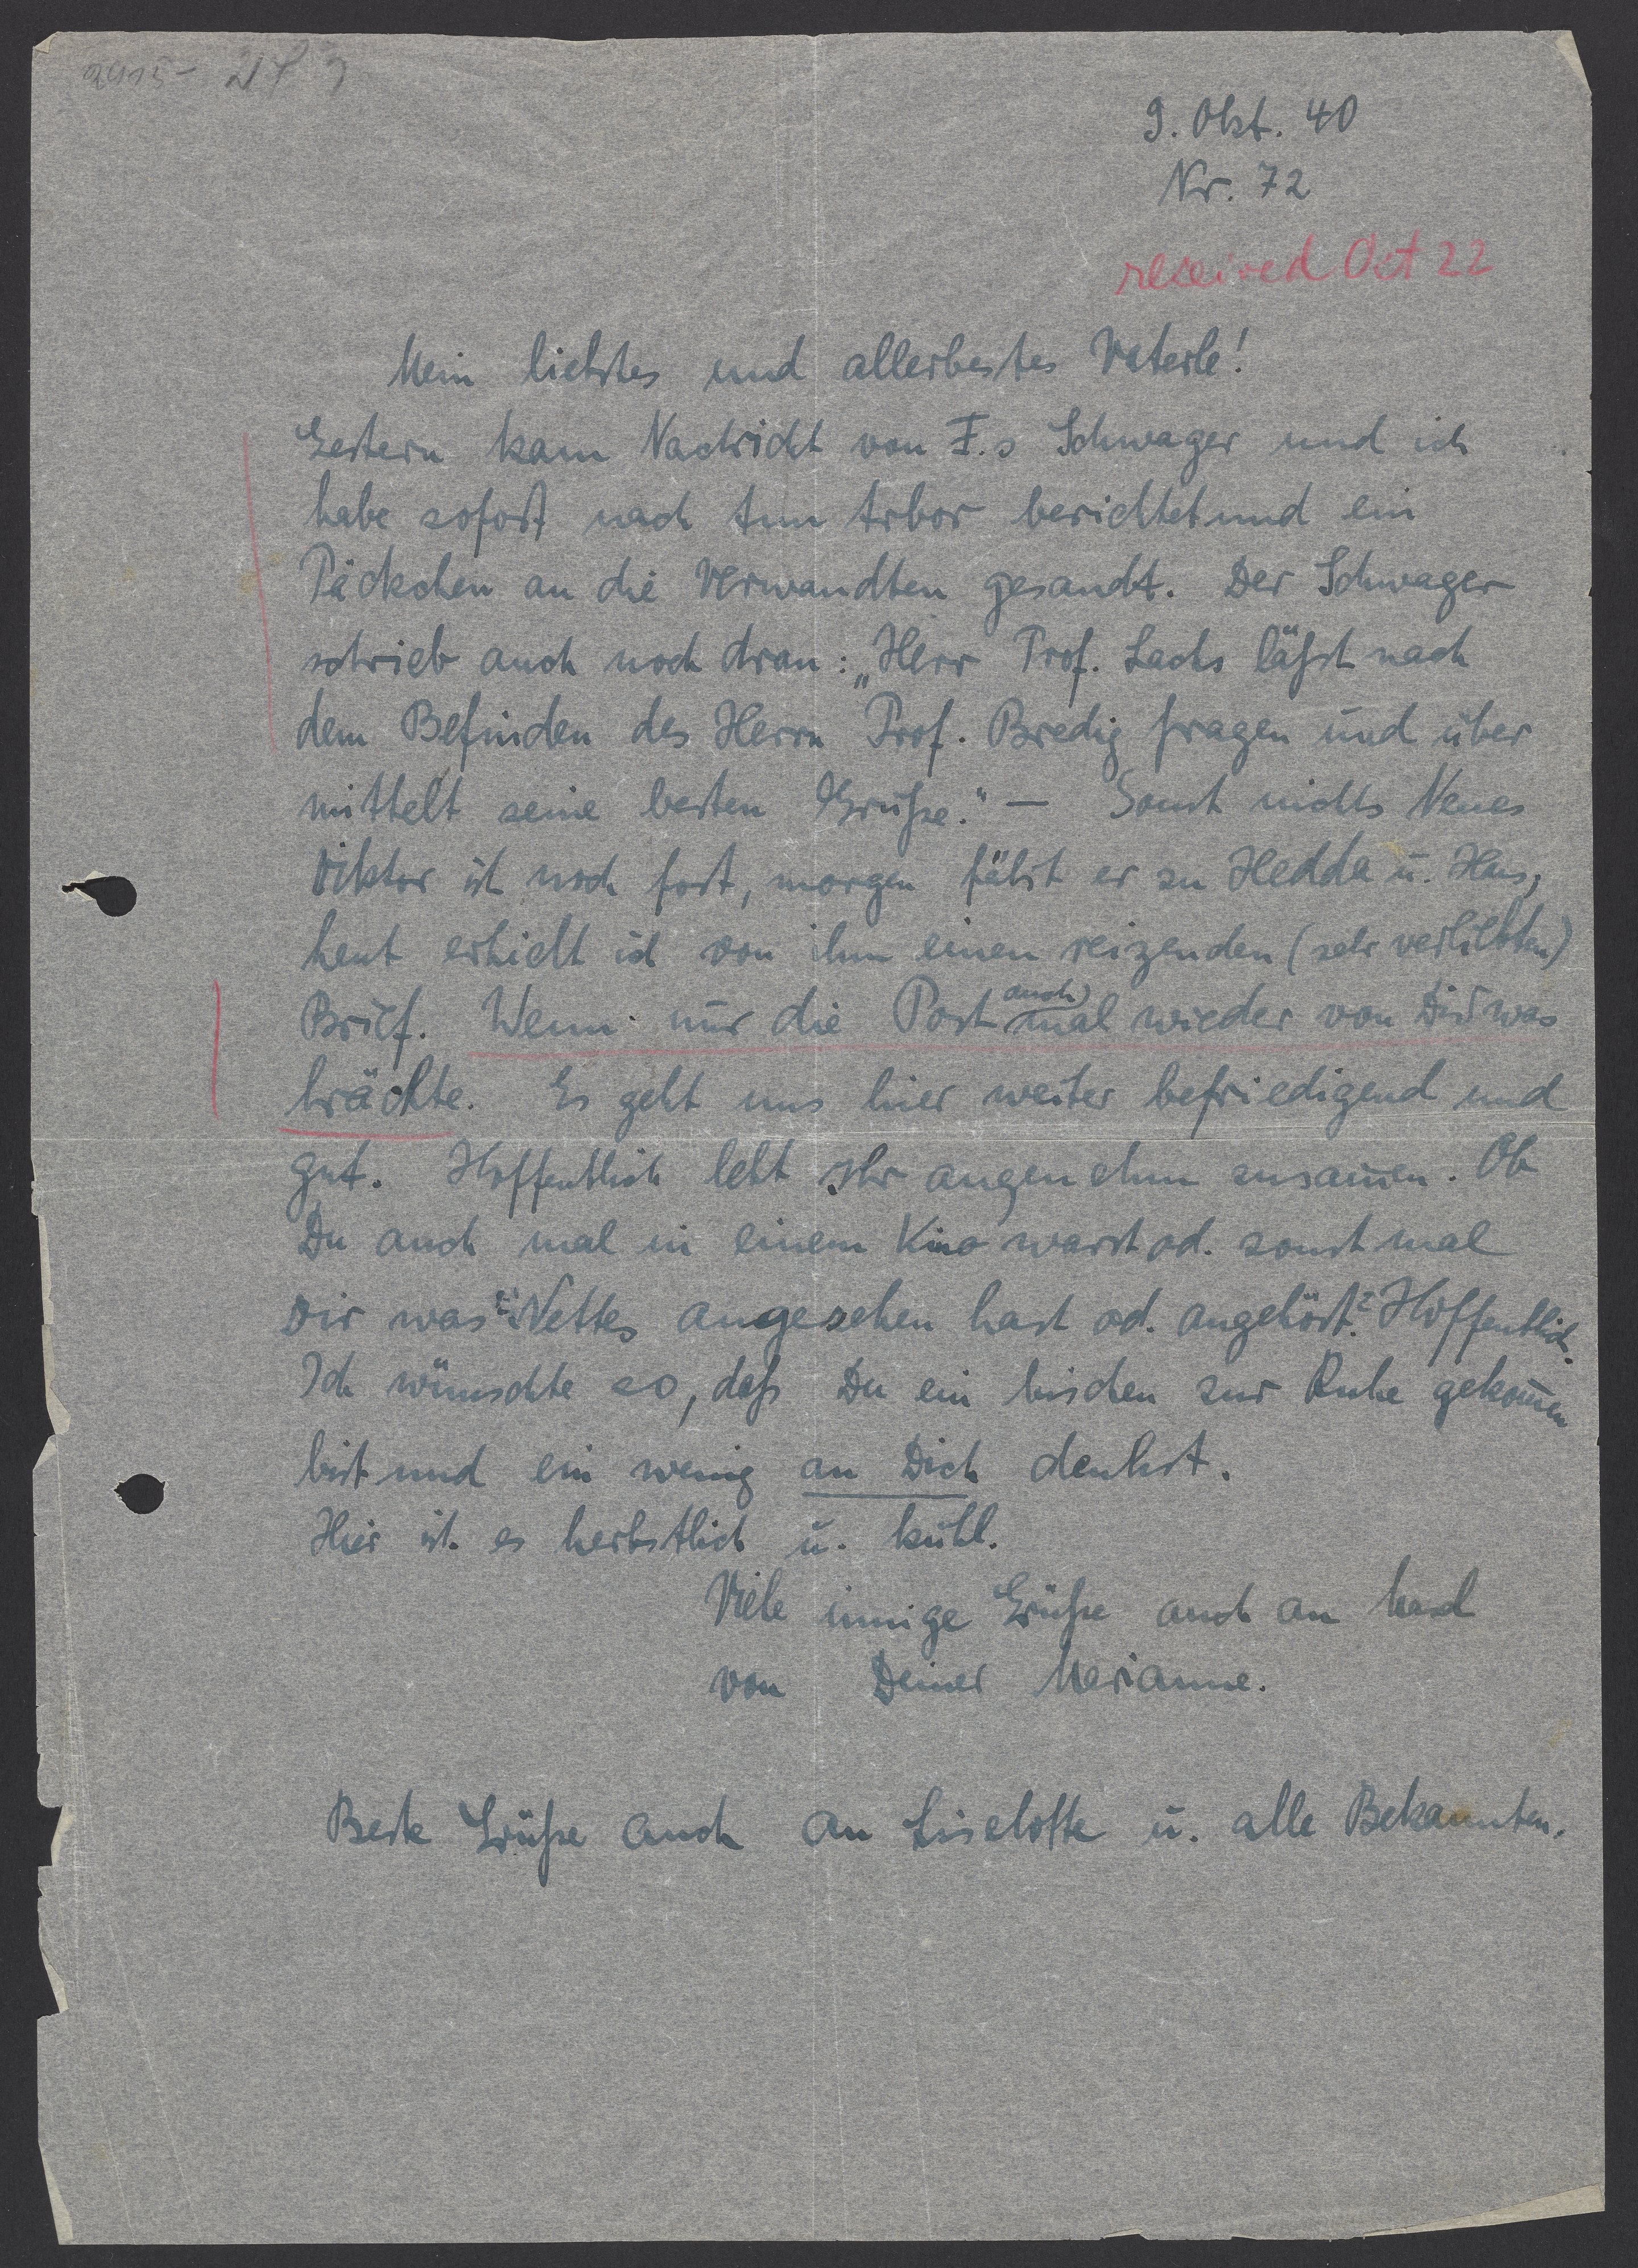 9. Okt. 40
Nr. 72
received Oct 22
Mein liebstes und allerbestes Vaterle!
Gestern kam Nachricht von F.s Schwager und ich
habe sofort nach Ann Arbor berichtet und ein
Päckchen an die Verwandten gesandt. Der Schwager
schrieb auch noch dran: „Herr Prof. Lachs läßt nach
dem Befinden des Herrn Prof. Bredig fragen und über
mittelt seine besten Grüße." — Sonst nichts Neues
Viktor ist noch fort, morgen fährt er zu Hedda u. Hans,
heut erhielt ich von ihm einen reizenden (sehr verliebten)
Brief. Wenn nur die Post auch mal wieder von Dir was
brächte. Es geht uns hier weiter befriedigend und
gut. Hoffentlich lebt Ihr angenehm zusam̄en. Ob
Du auch mal in einem Kino warst od. sonst mal
Dir was Nettes angesehen hast od. angehört? Hoffentlich.
Ich wünschte so, daß Du ein bischen zur Ruhe gekom̄en
bist und ein wenig an Dich denkst.
Hier ist es herbstlich u. kühl.
Viele innige Grüße auch an
von Deiner Marianne.
Beste Grüße auch an Liselotte u. alle Bekannten.